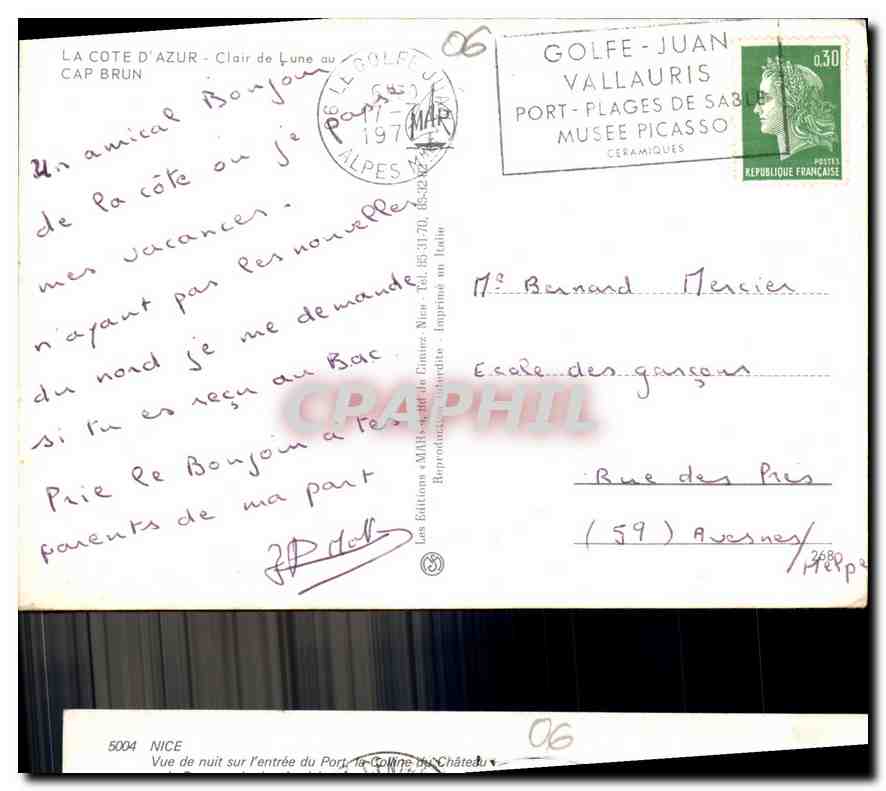 LA COTE D'AZUR - Clair de Lune au
CAP BRUN
06
LE GOLFE JUAN
197
ALPES MMES
MAR
GOLFE-JUAN
VALLAURIS
PORT-PLAGES DE SABLE
MUSEE PICASSO
CERAMIQUES
0,30
POSTES
REPUBLIQUE FRANÇAISE
Un amical Bonjour
de la côte ou je passe
mes vacances.
n'ayant pas les nouvelles
du nord je me demande
si tu es reçu au Bac.
Prie le Bonjour à tes
parents de ma part
Les Editions «MAR» Bd de Cimiez - Nice - Tél. 85-31-70, 85-32-82
Reproduction interdite - Imprimé en Italie
Mr Bernard Mercier
Ecole des garçons
Rue des Prés
(59) Avesnes/
Helpe
268
CPAPHIL
06
5004 NICE
Vue de nuit sur l'entrée du Port, la Colline du Château